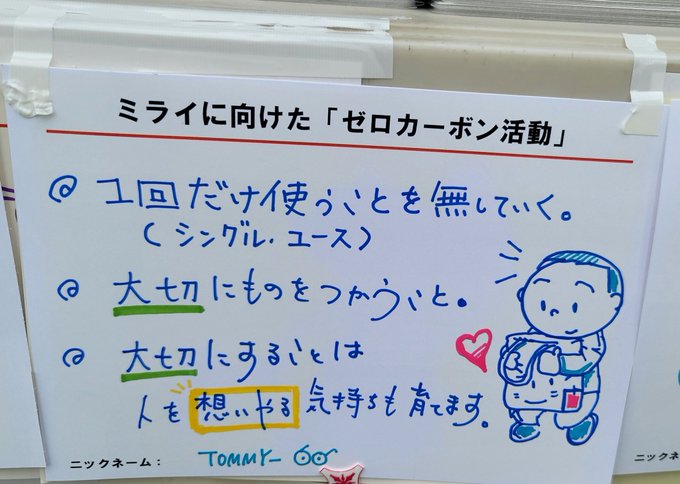 ミライに向けた「ゼロカーボン活動」
@ 1回だけ使うことを無していく。
(シングル・ユース)
@ 大切にものをつかうこと。
@ 大切にすることは
人を想いやる気持ちも育てます。
ニックネーム： TOMMY-
ニックネ